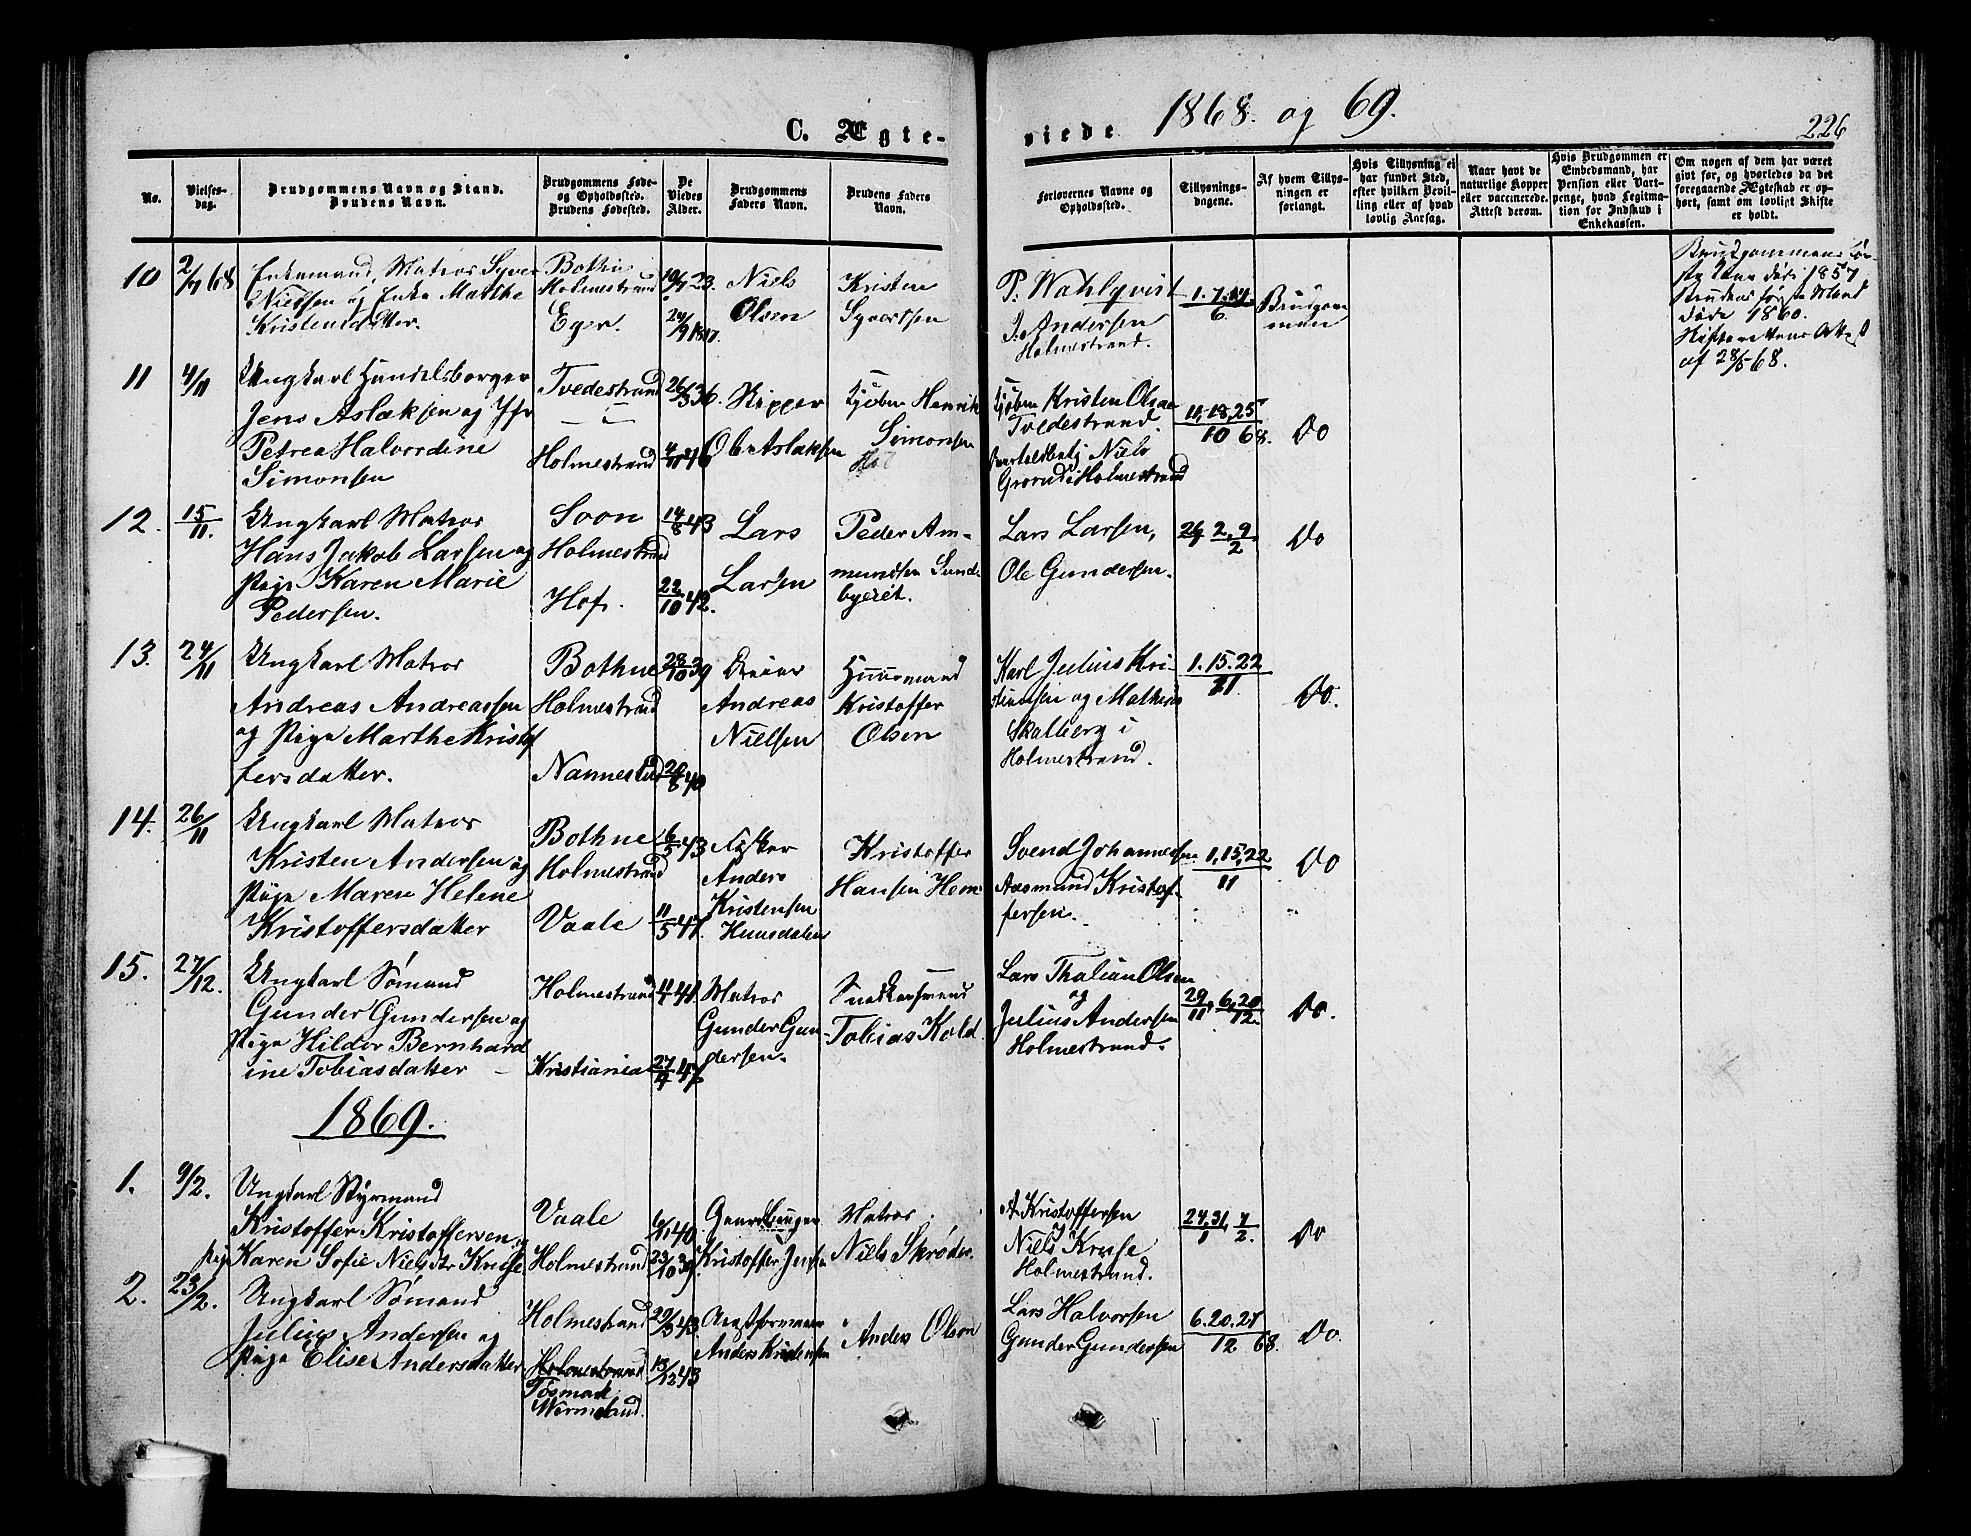 1868. og 69.
226
C. Ægte-
viede
No.
Vielses-
dag.
Brudgommens Navn og Stand.
Brudens Navn.
Brudgommens Føde-
og Opholdssted.
Brudens Fødested.
De
Viedes
Alder.
Brudgommens
Faders Navn.
Brudens Faders
Navn.
Forlovernes Navne og
Opholdssted.
Tillysnings-
dagene.
Af hvem Tillys-
ningen er
forlangt.
Hvis Tillysning ei
har fundet Sted,
efter hvilken Bevil-
ling eller af hvad
lovlig Aarsag.
Naar havt de
naturlige Kopper
eller vaccinerede.
Attest derom.
Hvis Brudgommen er
Embedsmand, har
Pension eller Vart-
penge, hvad Legitima-
tion for Indskud i
Enkekassen.
Om nogen af dem har været
gift for, og hvorledes da det
foregaaende Ægteskab er op-
hørt, samt om lovligt Skifte
er holdt.
10
2/7 68
Enkemand, Matros Syver
Nielsen og Enke Marthe
Kristensdatter.
Bothne
Holmestrand
Eger.
10/7 23.
29/9 1817.
Niels
Olsen
Kristen
Syvertsen
P. Wahlqvist
J. Andersen
Holmestrand.
1. 7. 14
6.
Brudgom-
men
Brudgommens før-
ste Kone døde 1857
Brudens første Mand
døde 1860.
Skifterettens Attest
af 28/5 68.
11
4/11
Ungkarl Handelsborger
Jens Aslaksen og Jfr
Petrea Halvordine
Simonsen
Tvedestrand
Holmestrand
26/3 36
4/11 46
Skipper
Ole Aslaksen
Kjøbm Henrik
Simonsen
Kjøbm Kristen Olsen
Tvedestrand.
Niels
Grorud i Holmestrand
11. 18. 25
10 68.
Do
12.
15/11.
Ungkarl Matros
Hans Jakob Larsen og
Pige Karen Marie
Pedersen.
Soon
Holmestrand
Hof.
14/8 43
22/10 42.
Lars
Larsen
Peder Am-
mundsen Sund-
byeiet.
Lars Larsen,
Ole Gundersen.
26 2. 9
2
Do
13.
24/11
Ungkarl Matros
Andreas Andreassen
og Pige Marthe Kristof
fersdatter.
Bothne
Holmestrand
Nannestad
28/10 39
20/8 40
Andreas
Nielsen
Huusmand
Kristoffer
Olsen
Karl Julius Kri-
stensen og Mathias
Skalberg i
Holmestrand.
1. 15. 22
11.
Do.
14.
26/11
Ungkarl Matros
Kristen Andersen og
Pige Maren Helene
Kristoffersdatter
Bothne
Holmestrand
Vaale
6/5 43
11/5 47.
Anders
Kristensen
Kristoffer
Hansen Hem
Svend Johannesen
Aasmund Kristof-
fersen.
1. 15. 22
11
Do
15.
27/12.
Ungkarl Sømand
Gunder Gundersen og
Pige Hilder Bernhard
ine Tobiasdatter
Holmestrand
Kristiania
Matros
Gunder Gun-
dersen.
Tobias Kold
Lars Thalian Olsen
og
Julius Andersen
Holmestrand.
29/11, 6. 20
12.
Do.
1869.
1.
9/2.
Ungkarl Styrmand
Kristoffer Kristoffersen og
Pige Karen Sofie Nielsdtr Kruse.
Vaale
Holmestrand
6/1 40.
23/10 39.
Gaardbruger
Kristoffer Jensen
Matros
Niels Skrøder.
A Kristoffersen
Niels J Kruse
Holmestrand.
24. 31, 7
1 2.
Do
2.
23/2.
Ungkarl Sømand
Julius Andersen og
Pige Elise Andersdatter
Holmestrand
Holmestrand
Tosmark
Wermeland.
29/3 43.
13/12 43
Anders Kristensen
Anders Olson
Lars Halvorsen
Gunder Gundersen
6. 20. 27
12 68.
Do.